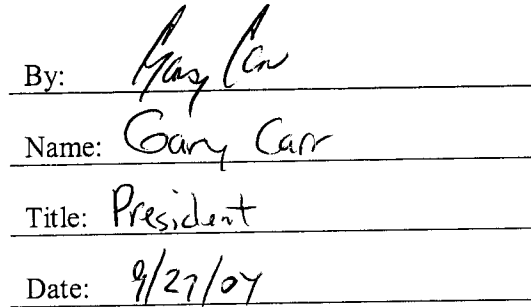 By: Gary Carr
Name: Gary Carr
Title: President
Date: 9/27/04